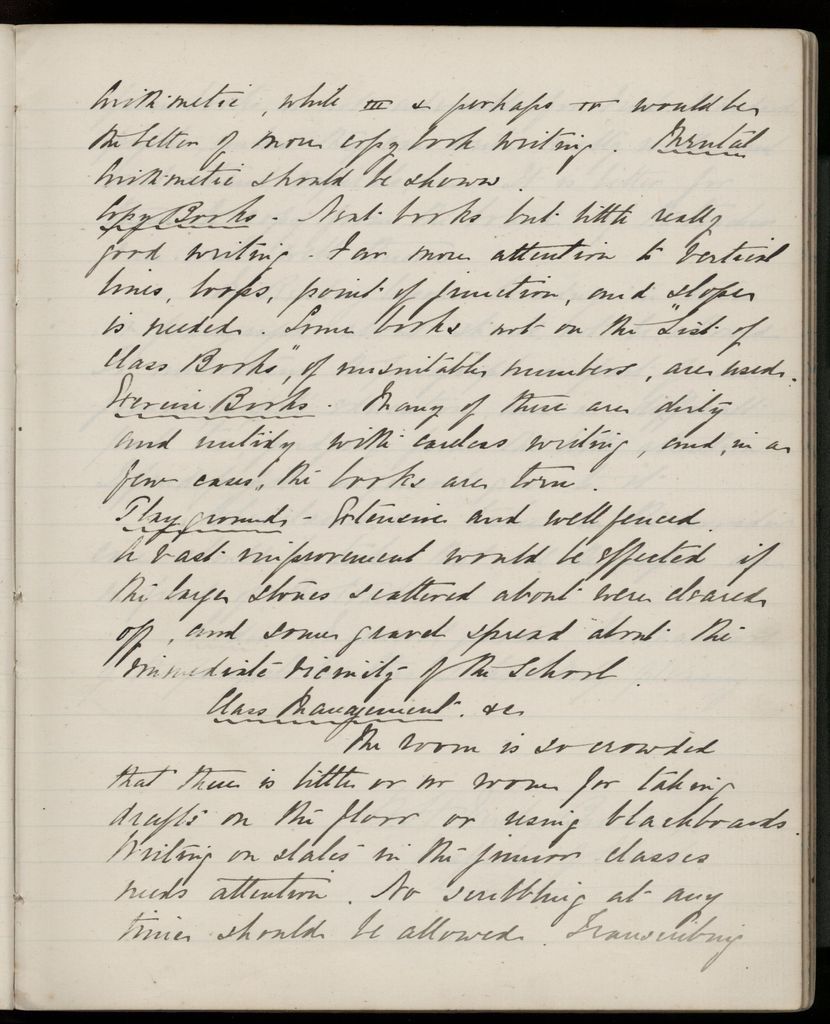 Arithmetic, while III & perhaps IV would be
the better of more copy book writing. Mental
Arithmetic should be shown.
Copy Books - Neat books but little really
good writing - Far more attention to vertical
lines, loops, point of junction, and slopes
is needed. Some books not on the "List of
Class Books", of unsuitable numbers, are used.
Exercise Books - Many of these are dirty
and untidy with careless writing, and, in a
few cases, the books are torn.
Playgrounds - Extensive and well fenced.
A vast improvement would be effected if
the larger stones scattered about were cleared
off, and some gravel spread about the
immediate vicinity of the School.
Class Management. &c
The room is so crowded
that there is little or no room for taking
drafts on the floor or using blackboards.
Writing on slates in the junior classes
needs attention. No scribbling at any
time should be allowed. Transcribing